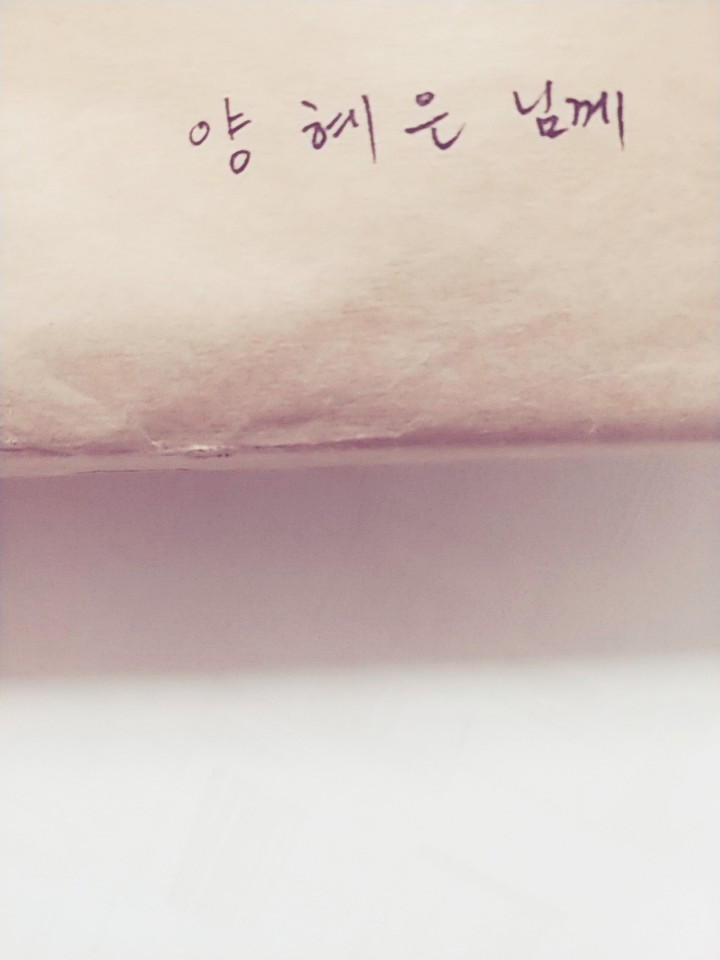 양 혜은 님께